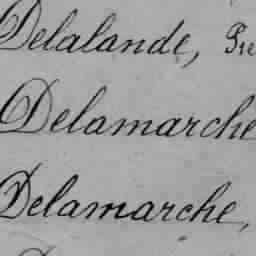 Delalande,
Delamarche
Delamarche,